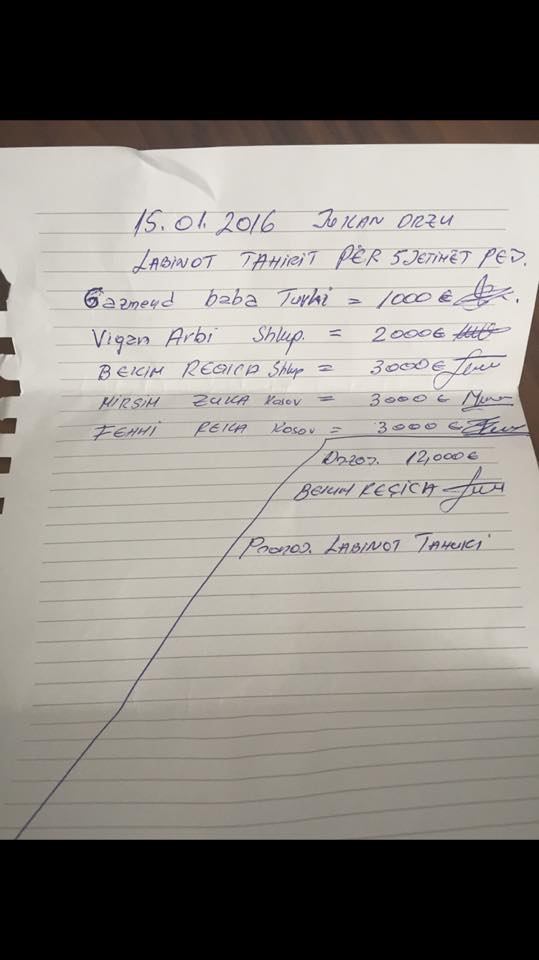 15.01.2016 JUKAN ORZU
LABINOT TAHIRIT PËR 5 JETIMËT PEJ.
Gazmend baba Turki = 1000 €
Vigan Arbi Shkup. = 2000€
BEKIM REÇICA Shkup = 3000€
MIRSIM ZUKA Kosov = 3000 €
FEHMI REKA Kosov = 3000 €
Dozoi. 12,000€
BEKIM REÇICA
Pranoi. LABINOT TAHIRI